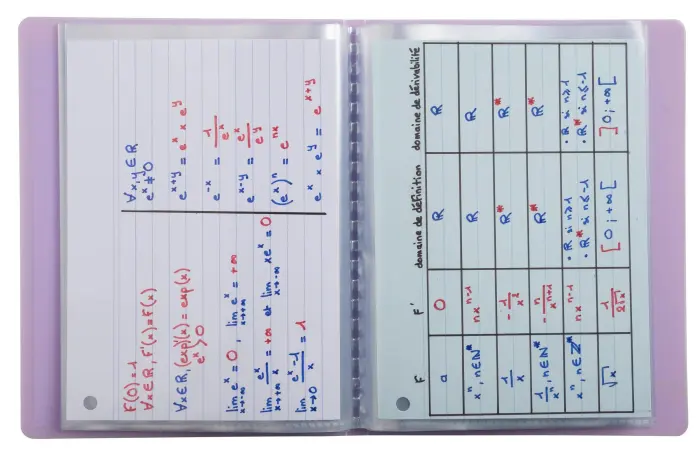 F(0)=1
∀x∈ℝ, F'(x)=F(x)
∀x∈ℝ, (exp)'(x) = exp(x)
eˣ>0
lim x→-∞ eˣ = 0, lim x→+∞ eˣ = +∞
lim x→+∞ eˣ/x = +∞ et lim x→-∞ xeˣ = 0
lim x→0 (eˣ-1)/x = 1
∀x,y∈ℝ
eˣ≠0
e^(x+y) = e^x × e^y
e^(-x) = 1/e^x
e^(x-y) = e^x/e^y
(e^x)^n = e^(nx)
e^x × e^y = e^(x+y)
F F' domaine de définition domaine de dérivabilité
a 0 ℝ ℝ
xⁿ, n∈ℕ* nxⁿ⁻¹ ℝ ℝ
1/x -1/x² ℝ* ℝ*
1/xⁿ, n∈ℕ* -n/xⁿ⁺¹ ℝ* ℝ*
xⁿ, n∈ℤ* nxⁿ⁻¹ • ℝ si n≥1 • ℝ si n≥1
• ℝ* si n≤-1 • ℝ* si n≤-1
√x 1/(2√x) [0;+∞[ ]0;+∞[